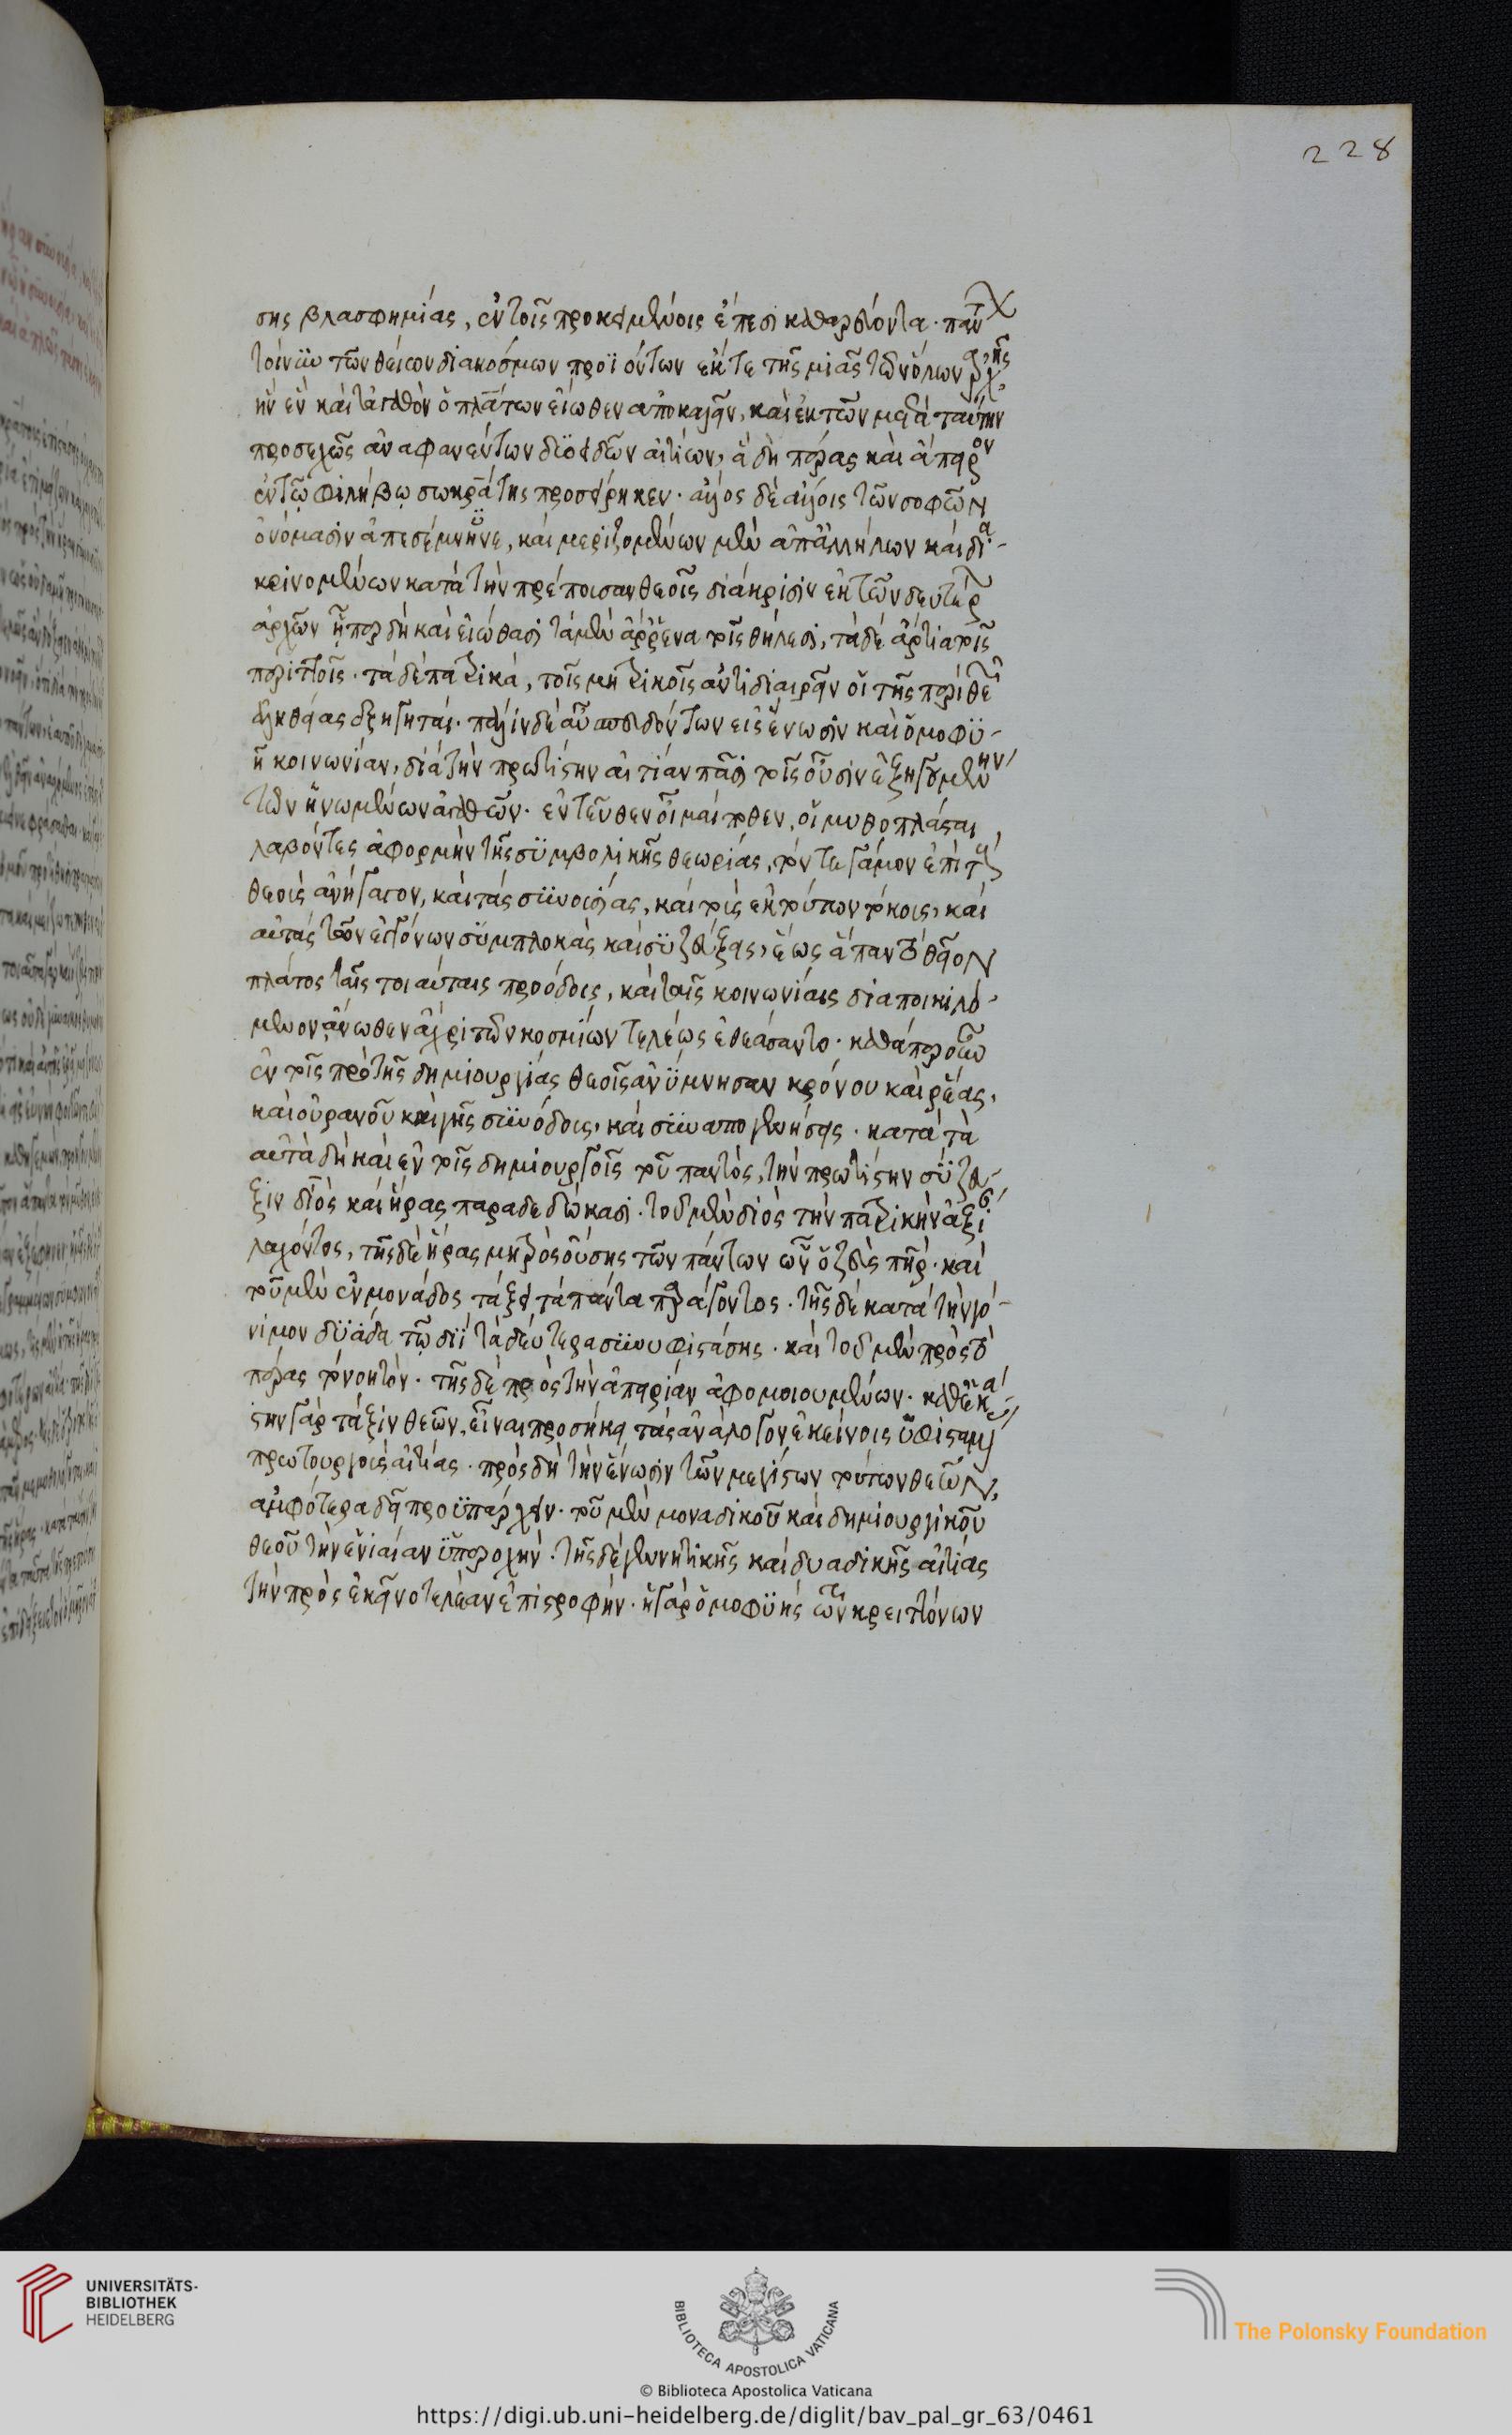 228
σης βλασφημίας, ἐν τοῖς προκειμένοις ἔπεσι καθαρεύοντα. πάντων
τοίνυν τῶν θείων διακόσμων προϊόντων ἔκ τε τῆς μιᾶς τῶν ὅλων ἀρχῆς
ἣν ἓν καὶ τἀγαθὸν ὁ πλάτων εἴωθεν ἀποκαλεῖν, καὶ ἐκ τῶν μετὰ ταύτην
προσεχῶς ἀναφανέντων δυοειδῶν αἰτίων, ἃ δὴ πέρας καὶ ἄπειρον
ἐν τῷ φιλήβῳ σωκράτης προσείρηκεν. ἄλλος δὲ ἄλλοις τῶν σοφῶν
ὀνόμασιν ἀπεσέμνυνε, καὶ μεριζομένων μὲν ἀπ' ἀλλήλων καὶ δια-
κρινομένων κατὰ τὴν πρέπουσαν θεοῖς διάκρισιν ἐκ τῶν δευτέρων
ἀρχῶν ᾗπερ δὴ καὶ εἰώθασι τὰ μὲν ἄρρενα τοῖς θήλεσι, τὰ δὲ ἄρτια τοῖς
περιττοῖς. τὰ δὲ πατρικά, τοῖς μητρικοῖς ἀντιδιαιρεῖν οἱ τῆς περὶ θεῶν
ἀληθείας ἐξηγηταί. πάλιν δὲ αὖ σπευδόντων εἰς ἕνωσιν καὶ ὁμοφυ-
ῆ κοινωνίαν, διὰ τὴν πρωτίστην αἰτίαν πᾶσι τοῖς οὖσιν ἐξηγουμένην
τῶν ἡνωμένων ἀγαθῶν. ἐντεῦθεν οἶμαί ποθεν, οἱ μυθοπλάσται
λαβόντες ἀφορμὴν τῆς συμβολικῆς θεωρίας, τόν τε γάμον ἐπὶ τοὺς
θεοὺς ἀνήγαγον, καὶ τὰς συνουσίας, καὶ τοὺς ἐκ τούτων τόκους, καὶ
αὐτὰς τῶν ἐκγόνων συμπλοκὰς καὶ συζεύξεις, ἕως ἅπαν τὸ θεῖον
πλάτος ταῖς τοιαύταις προόδοις, καὶ ταῖς κοινωνίαις διαποικιλό-
μενον ἄνωθεν ἄχρι τῶν κοσμίων τελέως ἐθεάσαντο. καθάπερ οὖν
ἐν τοῖς πρὸ τῆς δημιουργίας θεοῖς ἀνύμνησαν κρόνου καὶ ῥέας,
καὶ οὐρανοῦ καὶ γῆς συνόδους, καὶ συναπογεννήσεις. κατὰ τὰ
αὐτὰ δὴ καὶ ἐν τοῖς δημιουργοῖς τοῦ παντὸς, τὴν πρωτίστην σύζευ-
ξιν διὸς καὶ ἥρας παραδεδώκασι. τοῦ μὲν διὸς τὴν πατρικὴν ἀξίαν
λαχόντος, τῆς δὲ ἥρας μητρὸς οὔσης τῶν πάντων ὧν ὁ ζεὺς πατήρ. καὶ
τοῦ μὲν ἐν μονάδος τάξει τὰ πάντα παράγοντος. τῆς δὲ κατὰ τὴν γό-
νιμον δυάδα τῷ διὶ τὰ δεύτερα συνυφιστάσης. καὶ τοῦ μὲν πρὸς τὸ
πέρας τὸ νοητὸν. τῆς δὲ πρὸς τὴν ἀπειρίαν ἀφομοιουμένων. καθ' ἑκά-
στην γὰρ τάξιν θεῶν, εἶναι προσήκει τὰς ἀνάλογον ἐκείνοις ὑφισταμένας
πρωτουργοὺς αἰτίας. πρὸς δὴ τὴν ἕνωσιν τῶν μεγίστων τούτων θεῶν,
ἀμφότερα δεῖ προϋπάρχειν. τοῦ μὲν μοναδικοῦ καὶ δημιουργικοῦ
θεοῦ τὴν ἑνιαίαν ὑπεροχήν. τῆς δὲ γεννητικῆς καὶ δυαδικῆς αἰτίας
τὴν πρὸς ἐκεῖνο τελέαν ἐπιστροφήν. ἡ γὰρ ὁμοφυὴς τῶν κρειττόνων
UNIVERSITÄTS-
BIBLIOTHEK
HEIDELBERG
BIBLIOTECA APOSTOLICA VATICANA
The Polonsky Foundation
© Biblioteca Apostolica Vaticana
https://digi.ub.uni-heidelberg.de/diglit/bav_pal_gr_63/0461